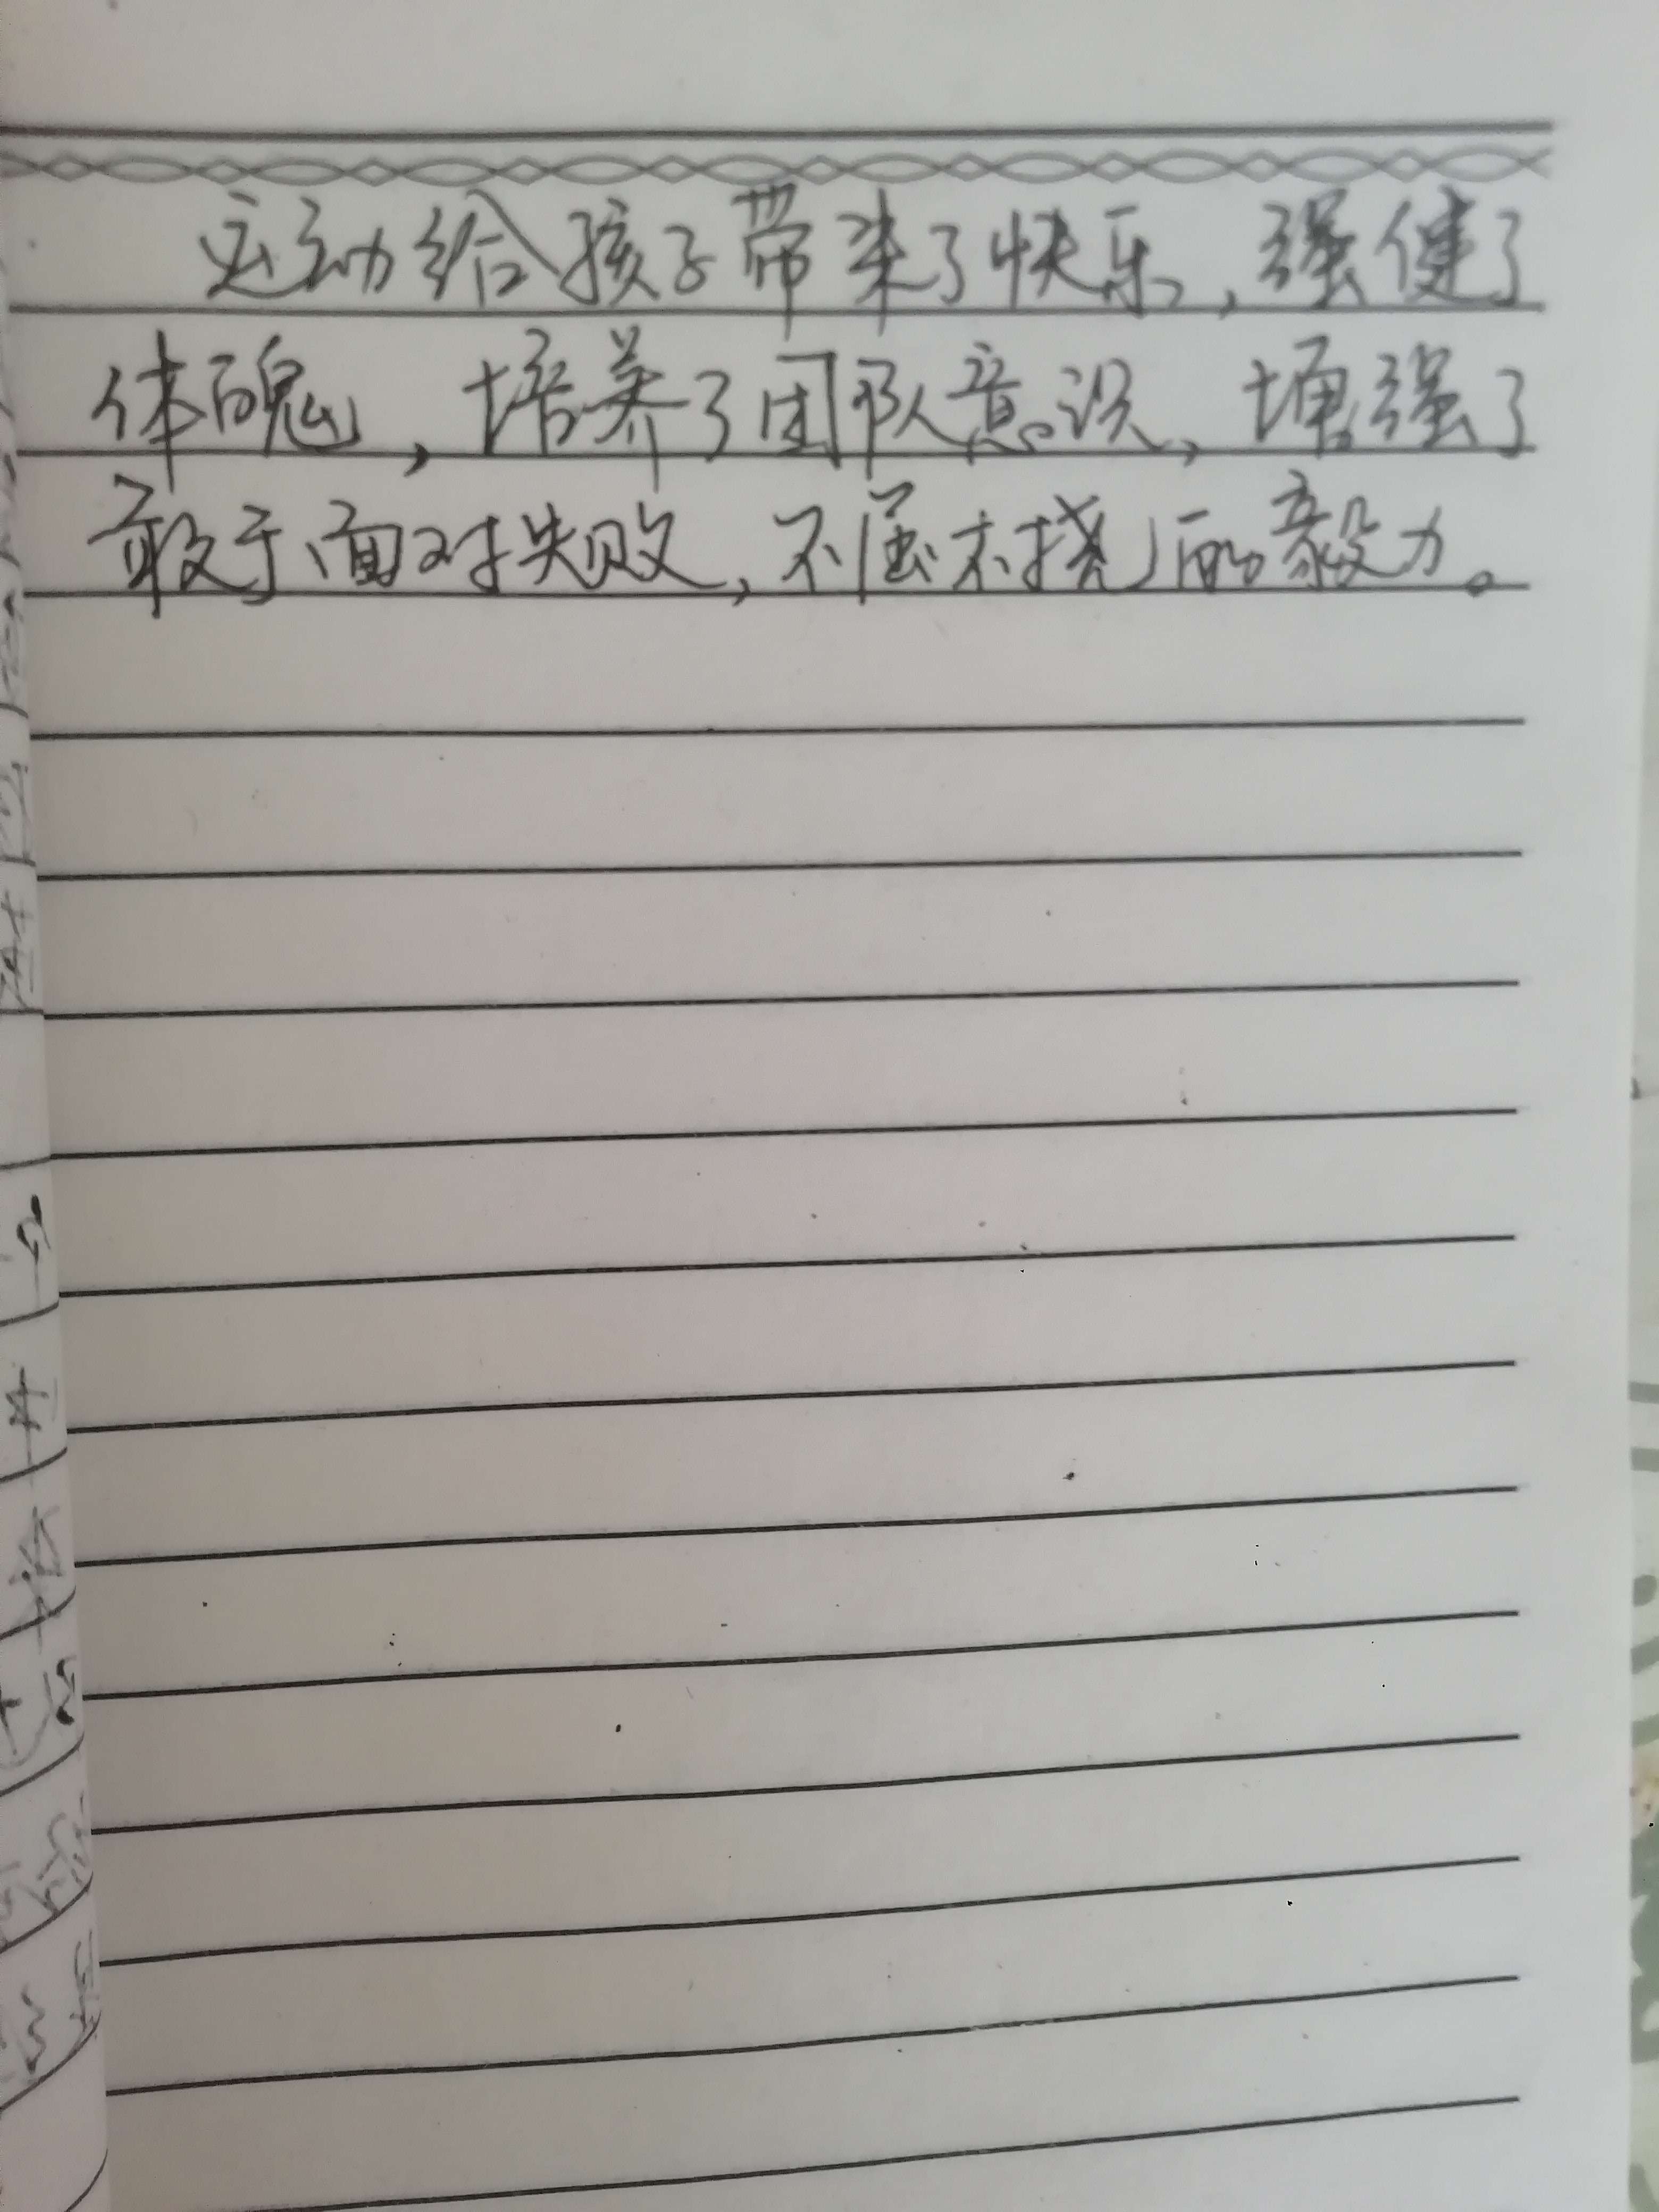 运动给孩子带来了快乐，强健了
体魄，培养了团队意识，增强了
敢于面对失败，不屈不挠的毅力。